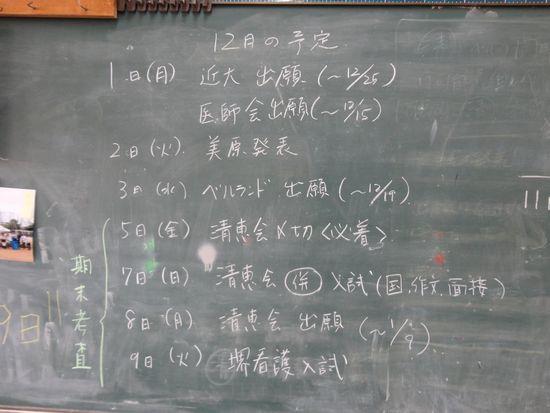 12月の予定
1日(月) 近大 出願 (～12/25)
医師会出願(～12/15)
2日(火) 美原発表
3日(水) ベルランド 出願 (～12/19)
5日(金) 清恵会〆切<必着>
7日(日) 清恵会 (併) 入試 (国,作文,面接)
8日(月) 清恵会 出願 (～1/9)
9日(火) 堺看護入試
期末考査
9日